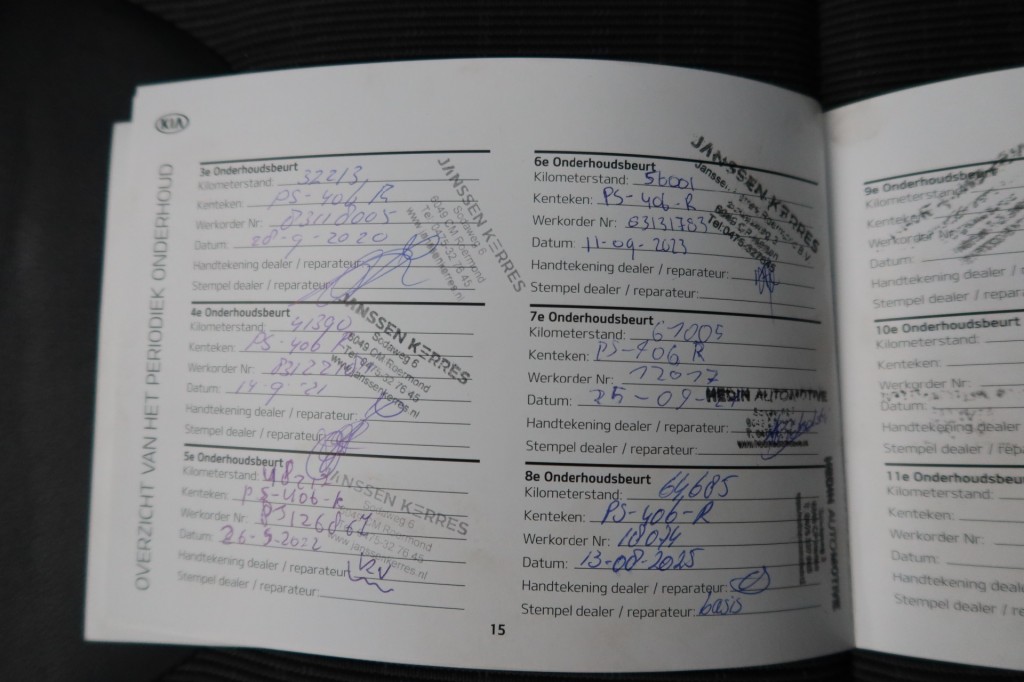 KIA
OVERZICHT VAN HET PERIODIEK ONDERHOUD
3e Onderhoudsbeurt
Kilometerstand: 32213
Kenteken: PS-406 R
Werkorder Nr: 83110005
Datum: 28-9-2020
Handtekening dealer / reparateur:
Stempel dealer / reparateur:
JANSSEN KERRES
Sodaweg 6
6049 CM Roermond
Tel. 0475-32 76 45
www.janssenkerres.nl
4e Onderhoudsbeurt
Kilometerstand: 41390
Kenteken: PS-406
Werkorder Nr:
Datum: 14-9-'21
Handtekening dealer / reparateur:
Stempel dealer / reparateur:
JANSSEN KERRES
Sodaweg 6
6049 CM Roermond
Tel. 0475-32 76 45
www.janssenkerres.nl
5e Onderhoudsbeurt
Kilometerstand:
Kenteken: PS-406-R
Werkorder Nr: 83126864
Datum: 26-9-2022
Handtekening dealer / reparateur:
Stempel dealer / reparateur:
JANSSEN KERRES
Sodaweg 6
6049 CM Roermond
Tel. 0475-32 76 45
www.janssenkerres.nl
6e Onderhoudsbeurt
Kilometerstand: 56001
Kenteken: PS-406-R
Werkorder Nr: 63131783
Datum: 11-09-2023
Handtekening dealer / reparateur:
Stempel dealer / reparateur:
JANSSEN KERRES
7e Onderhoudsbeurt
Kilometerstand: 61005
Kenteken: PS-406 R
Werkorder Nr: 12017
Datum: 25-09-
Handtekening dealer / reparateur:
Stempel dealer / reparateur:
HEDIN AUTOMOTIVE
8e Onderhoudsbeurt
Kilometerstand: 64685
Kenteken: PS-406-R
Werkorder Nr: 18074
Datum: 13-08-2025
Handtekening dealer / reparateur:
Stempel dealer / reparateur: basis
HEDIN AUTOMOTIVE
15
9e Onderhoudsbeurt
Kilometerstand
Kenteken:
Werkorder Nr:
Datum:
Handtekening dealer
Stempel dealer / repar
10e Onderhoudsbeurt
Kilometerstand:
Kenteken:
Werkorder Nr:
Datum:
Handtekening dealer
Stempel dealer / rep
11e Onderhoudsbeu
Kilometerstand:
Kenteken:
Werkorder Nr:
Datum:
Handtekening dealer
Stempel dealer / re